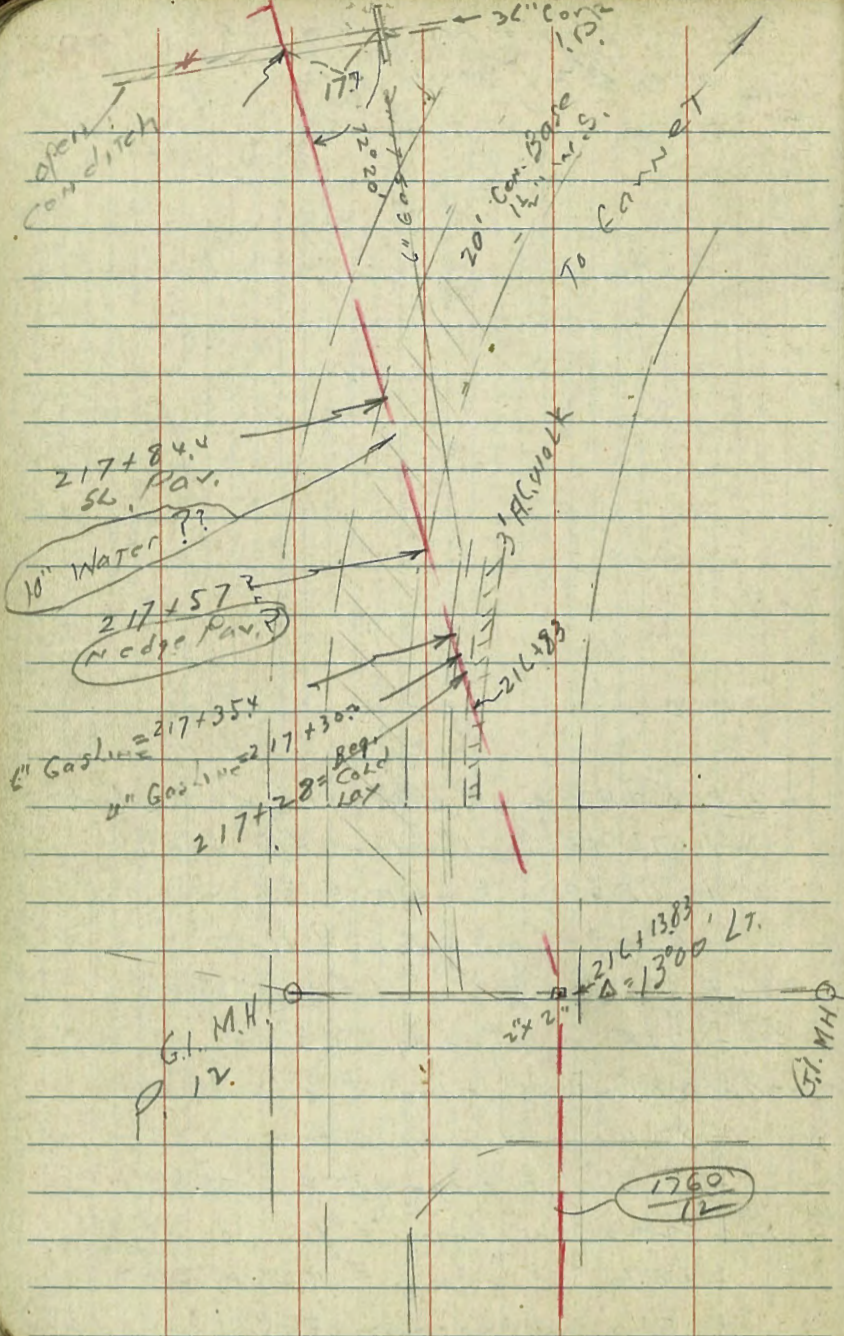 36" Conc.
I.P.
177
Open
Con ditch
72°02'
6" Gas Line
20' Con. Base
1½" W.S.
To Connect
217+84.4
SL. Pav.
10" Water ??
217+57?
N edge Pav.?
3' A.C. Walk
216+83
6" Gas Line = 217+35.4
4" Gas Line = 217+30.2
217+28 = Beg.
Cold
Lay
216+13.83
Δ = 13°00' LT.
2"x2"
G.I. M.H.
12.
G.I. MH
1760'
12